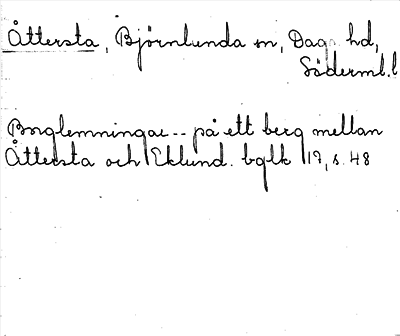 Åttersta, Björnlunda sn, Daga hd,
Söderml. l
Borglemningar -- på ett berg mellan
Åttersta och Eklund. bglk 19, s. 48